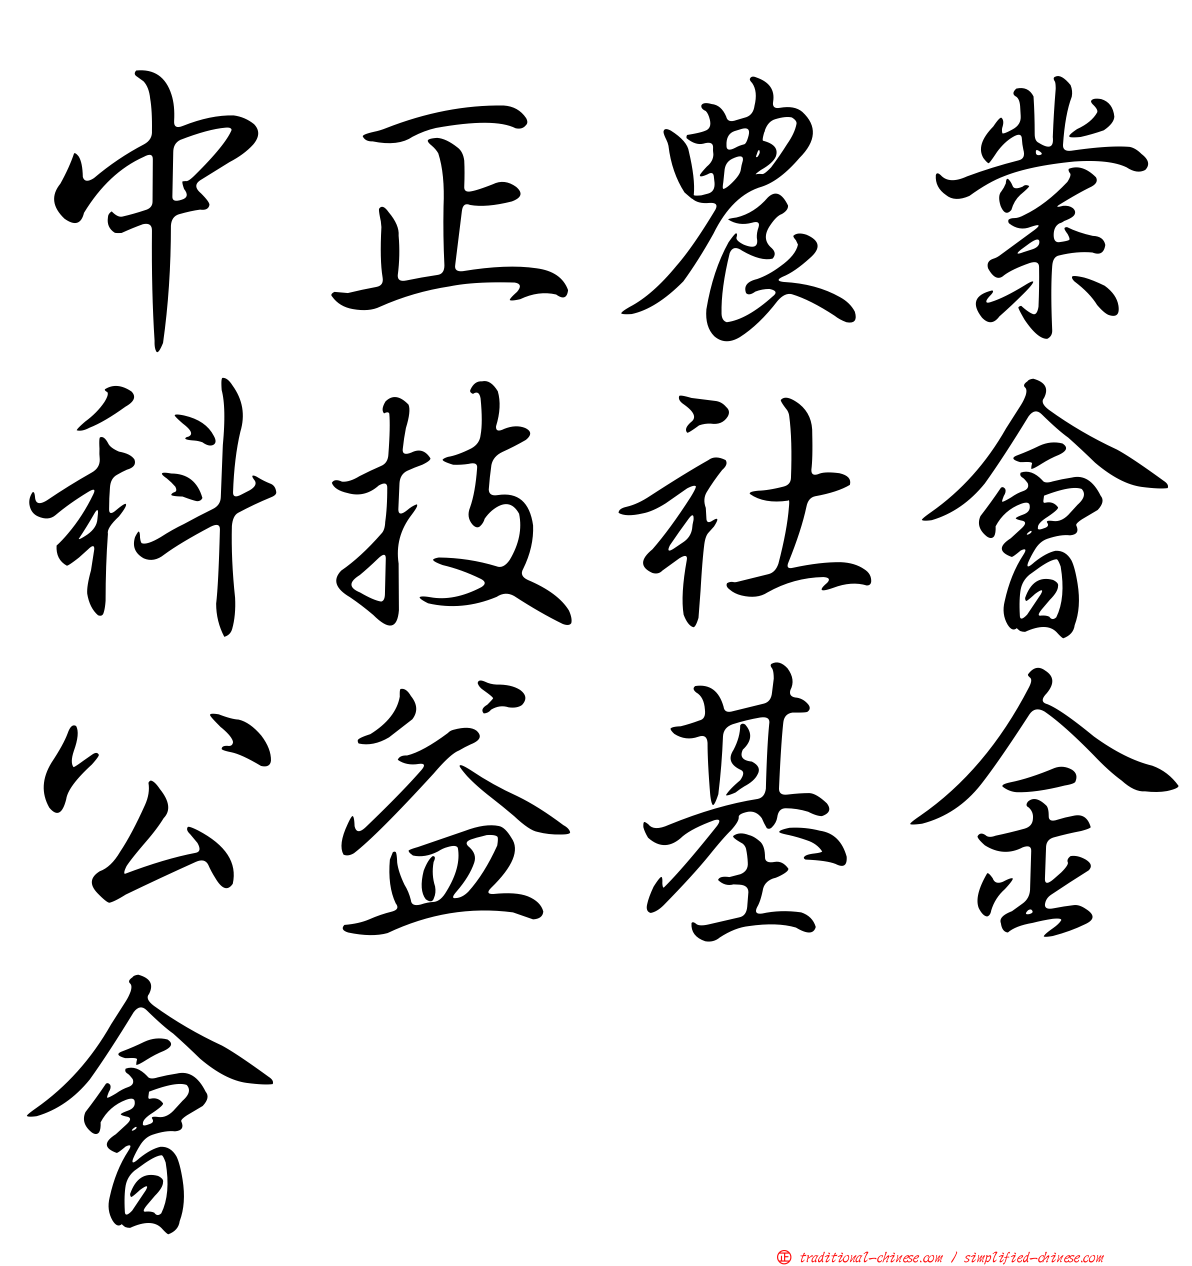 中正農業
科技社會
公益基金
會
正 traditional-chinese.com / simplified-chinese.com